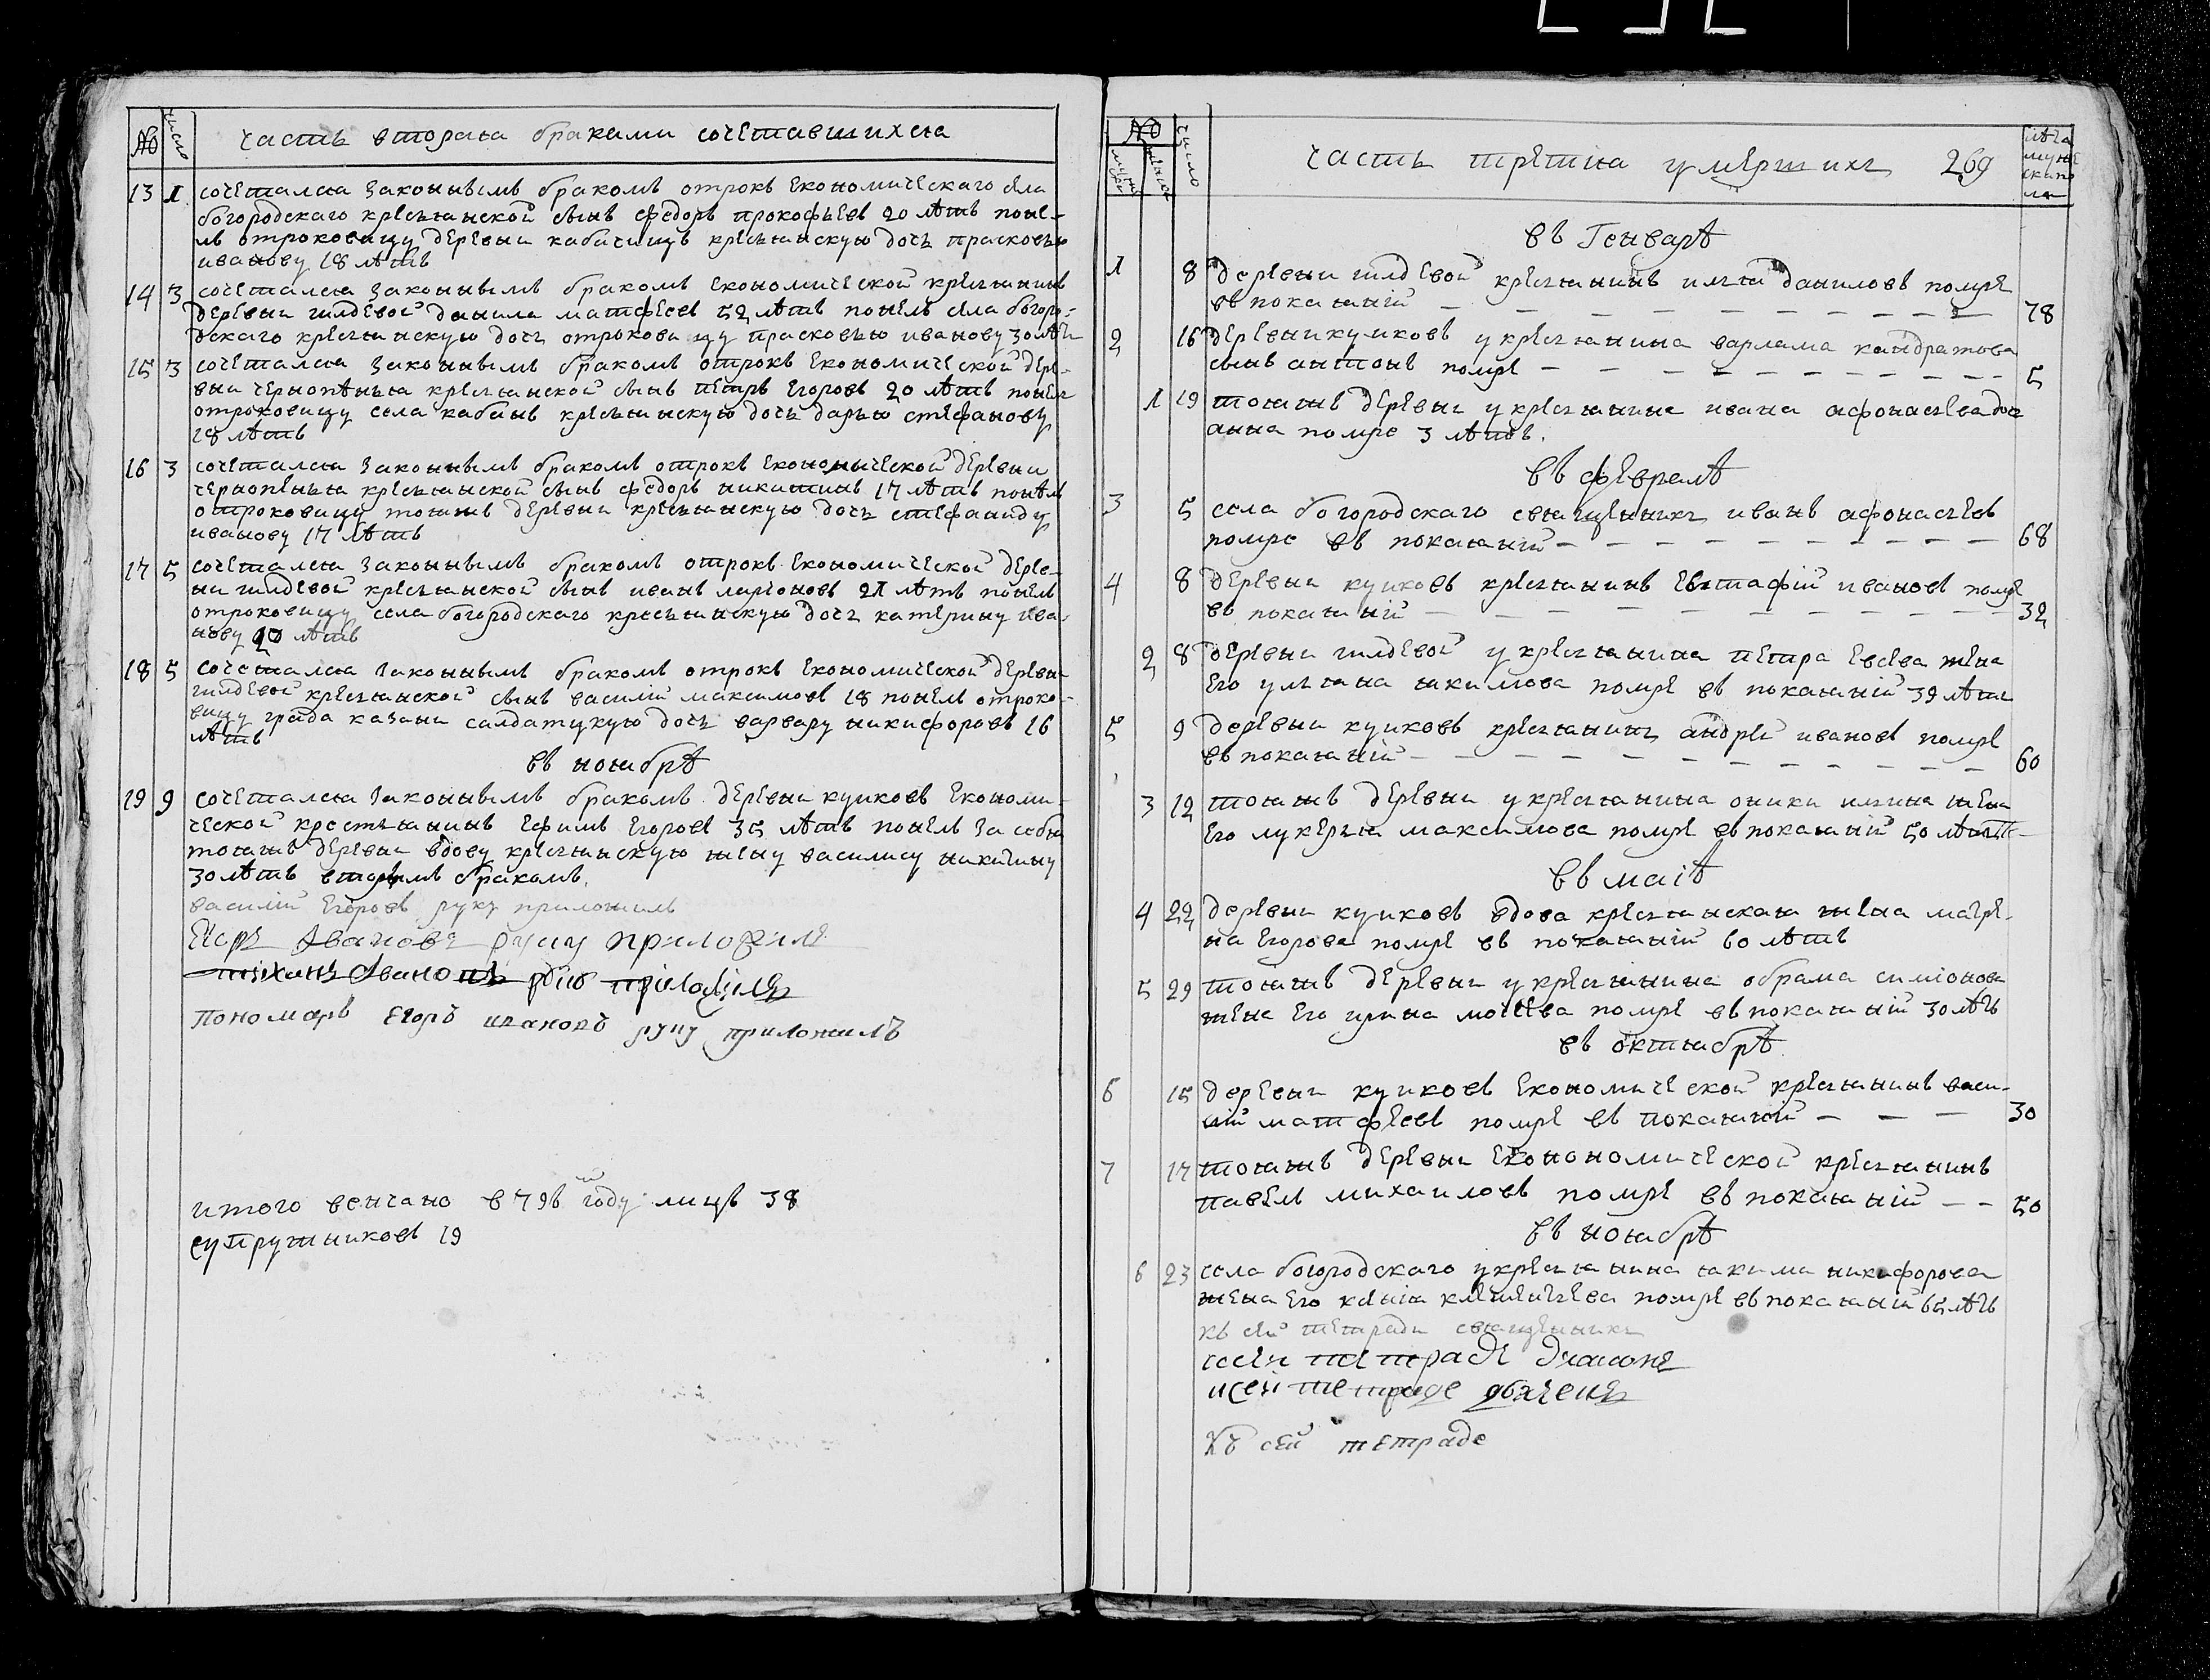 № число часть вторая браками сочетавшихся
13 1 сочетался законнымъ бракомъ отрокъ економическаго села
богородскаго крестьянской сынъ федоръ прокофьевъ 20 лѣтъ поне-
лъ отроковицу деревни кабачищъ крестьянскую дочь прасковью
иванову 18 лѣтъ
14 3 сочетался законнымъ бракомъ економической крестьянинъ
деревни гилдевой данила матфеевъ 52 лѣтъ понелъ села богоро-
дскаго крестьянскую дочь отроковицу прасковью иванову 30 лѣтъ
15 3 сочетался законнымъ бракомъ отрокъ економической дере-
вни чернопенья крестьянской сынъ петръ егоровъ 20 лѣтъ понелъ
отроковицу села кабанъ крестьянскую дочь дарью стефанову
18 лѣтъ
16 3 сочетался законнымъ бракомъ отрокъ економической деревни
чернопенья крестьянской сынъ федоръ никитинъ 17 лѣтъ понелъ
отроковицу тояжъ деревни крестьянскую дочь стефаниду
иванову 17 лѣтъ
17 5 сочетался законнымъ бракомъ отрокъ економической дерев-
ни гилдевой крестьянской сынъ иванъ ларіоновъ 21 лѣтъ понелъ
отроковицу села богородскаго крестьянскую дочь катерину ива-
нову 20 лѣтъ
18 5 сочетался законнымъ бракомъ отрокъ економической деревни
гилдевой крестьянской сынъ василій максимовъ 18 понелъ отроко-
вицу града казани салдатцкую дочь варвару никифоровъ 16
лѣтъ
въ ноябрѣ
19 9 сочетался законнымъ бракомъ деревни куиковъ економи-
ческой крестьянинъ ефимъ егоровъ 35 лѣтъ понелъ за себя
тояжъ деревни вдову крестьянскую жену василису никитину
30 лѣтъ вторымъ бракомъ.
василій егоровъ руку приложилъ
Ивановъ руку приложилъ
Ивановъ приложилъ
пономарь егоръ ивановъ руку приложилъ
итого венчано в 796 году лицъ 38
супружниковъ 19
№ число часть третия умерших 269 лѣта мужескаполa
въ Генварѣ
1 8 деревни гилдевой крестьянинъ илья даниловъ помре
въ покаянии 78
2 16 деревни куиковъ у крестьянина варлама кандратова
сынъ антонъ помре 5
1 19 тояжъ деревни у крестьянина ивана афонасьева доч
анна помре 3 лѣтъ.
въ февралѣ
3 5 села богородскаго священникъ иванъ афонасьевъ
помре въ покаянии 68
4 8 деревни куиковъ крестьянинъ евстафій ивановъ помре
въ покаянии 32
2 8 деревни гилдевой у крестьянина петра евсева жена
его ульяна якимова помре въ покаянии 39 лѣтъ
5 9 деревни куиковъ крестьянинъ андрей ивановъ помре
въ покаянии 60
3 12 тояжъ деревни у крестьянина оники ильина жена
его лукерья максимова помре въ покаянии 50 лѣтъ
въ маіѣ
4 22 деревни куиковъ вдова крестьянская жена матре-
на егорова помре въ покаянии 60 лѣтъ
5 29 тояжъ деревни у крестьянина обрама симіонова
жена его ирина мосеева помре въ покаянии 30 лѣтъ
въ октябрѣ
6 15 деревни куиковъ економической крестьянинъ васи-
лій матфеевъ помре въ покаянии 30
7 17 тояжъ деревни економономической крестьянинъ
павелъ михаиловъ помре въ покаянии 50
въ ноябрѣ
6 23 села богородскаго у крестьянина якима никифорова
жена его ксенія клементьева помре въ покаянии 65 лѣтъ
къ сей тетради священникъ
ксеи тетраде диаконъ
ксеи тетраде
Къ сей тетраде